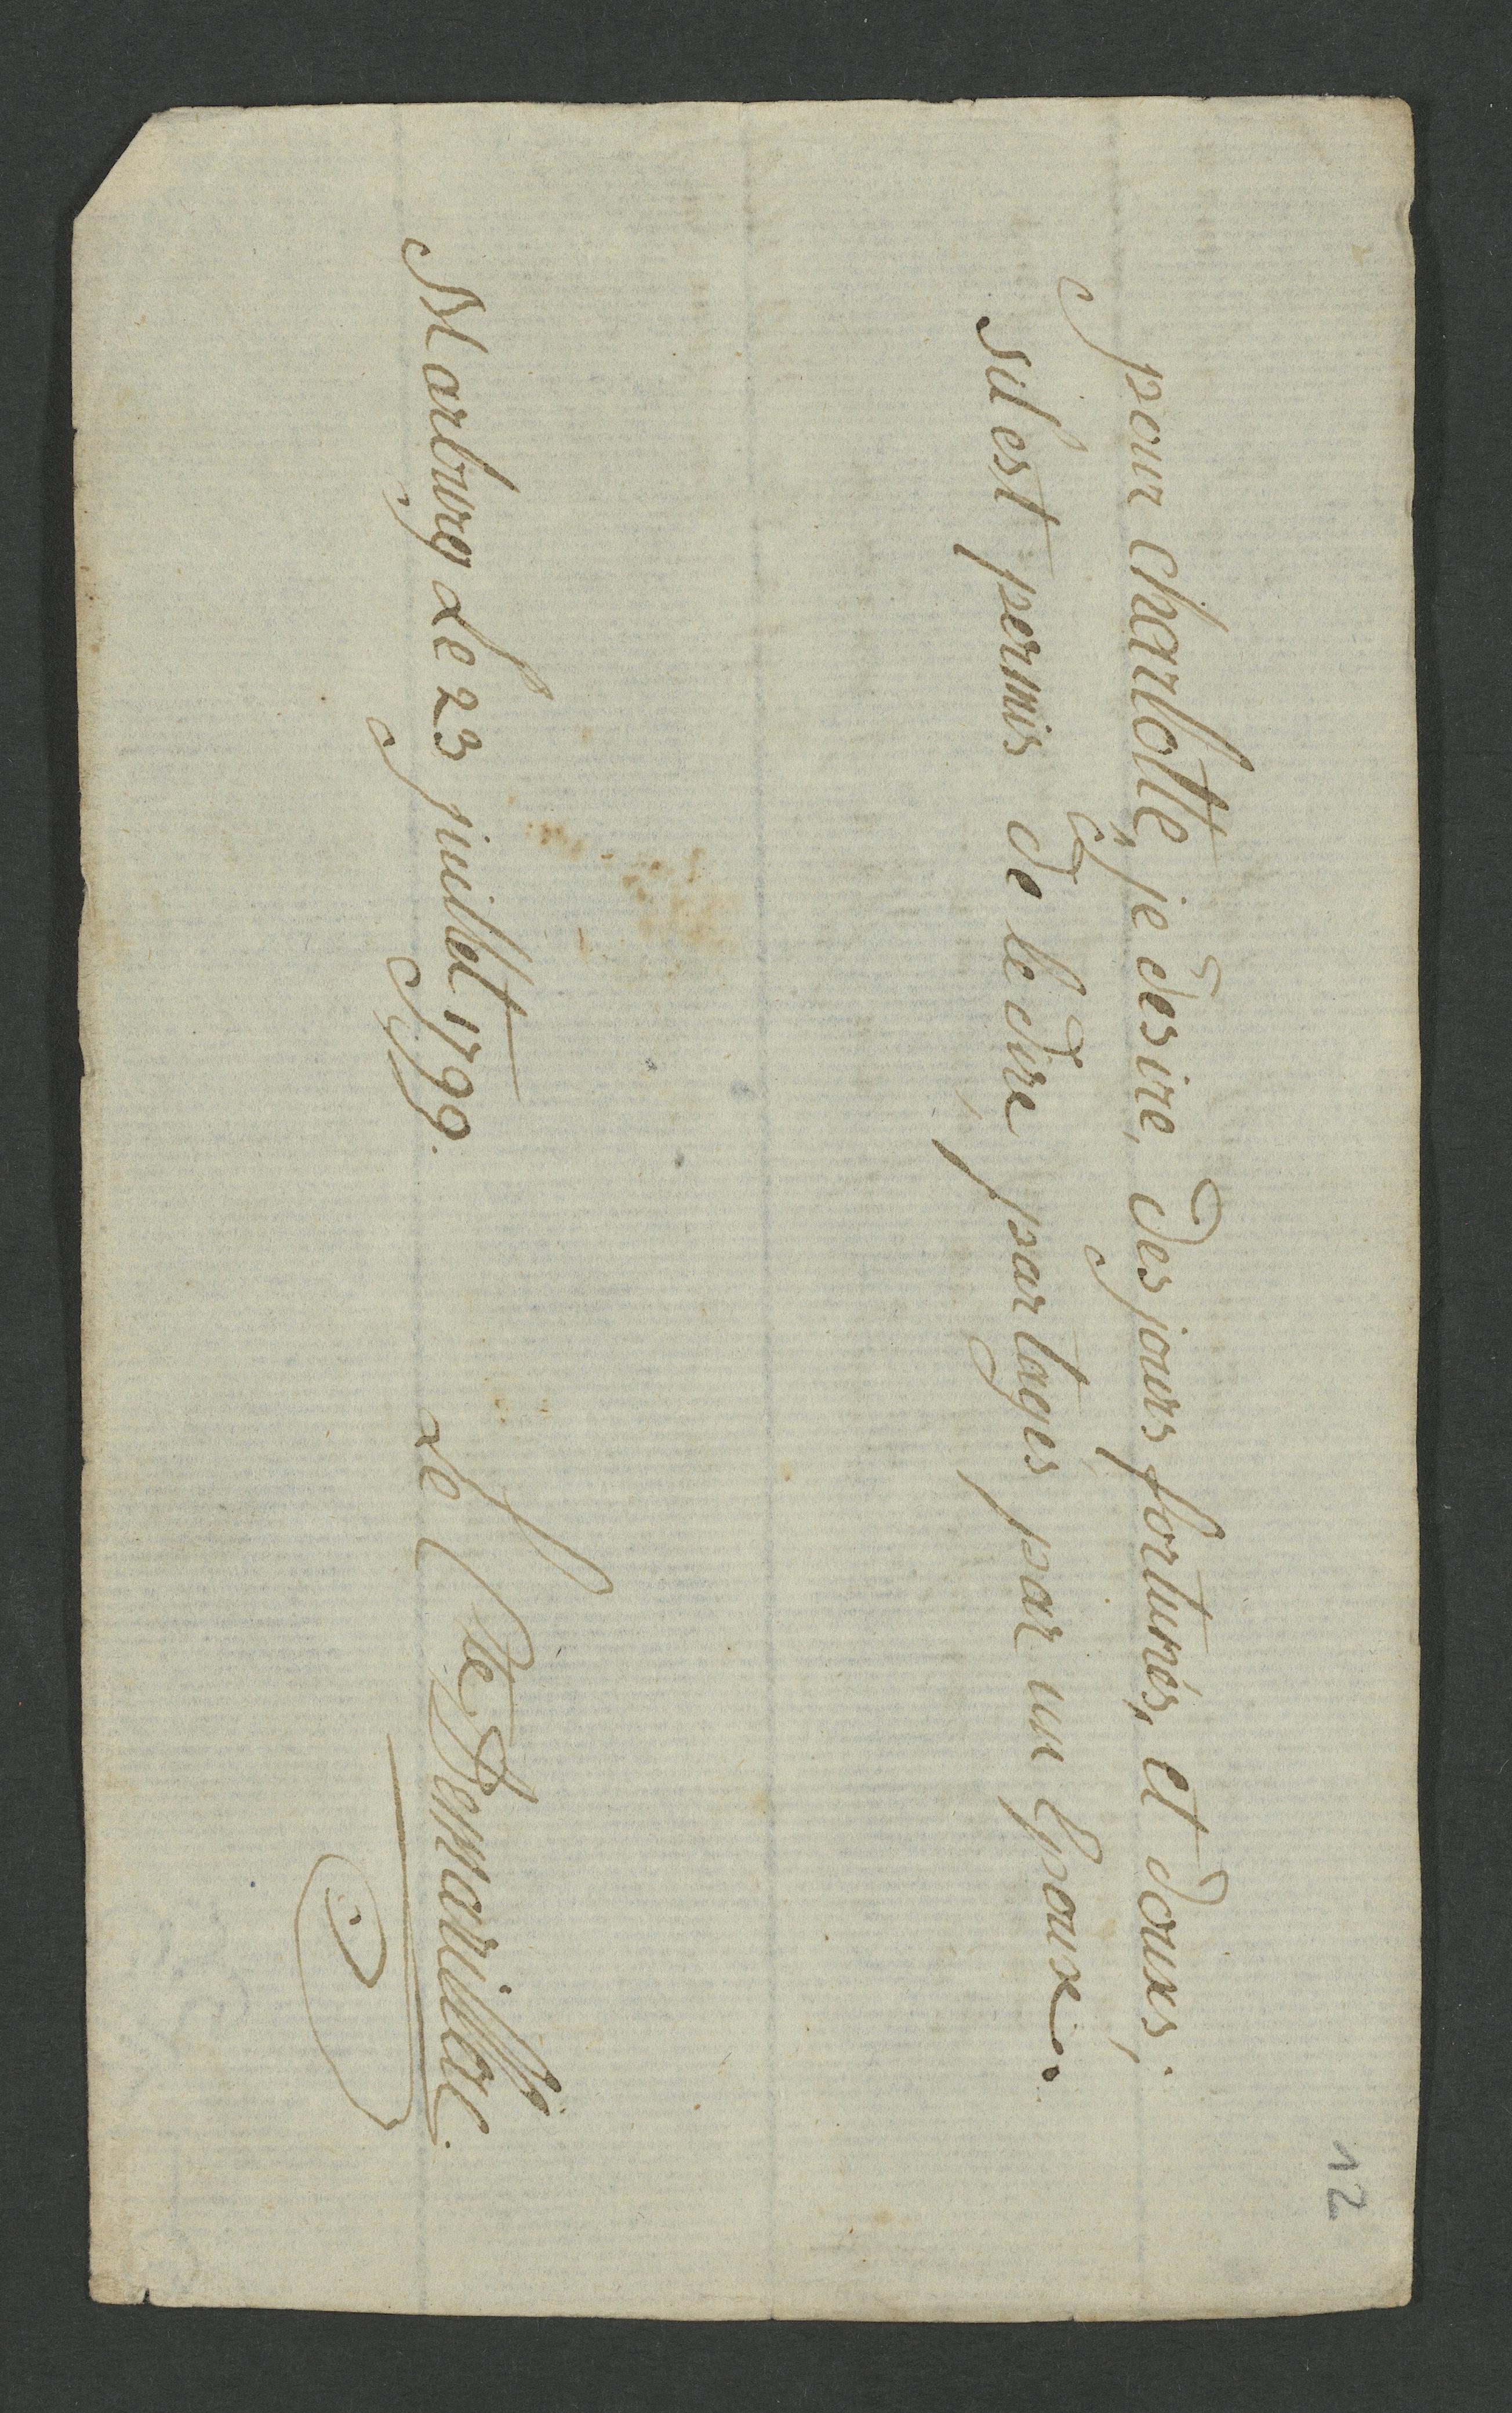 12
pour charlotte, je desire, des jours fortunés, et douxs;
sil est permis de le dire, partagés par un Epoux.
Marburg le 23 juillet 1799.
Le Cte Demarillac.